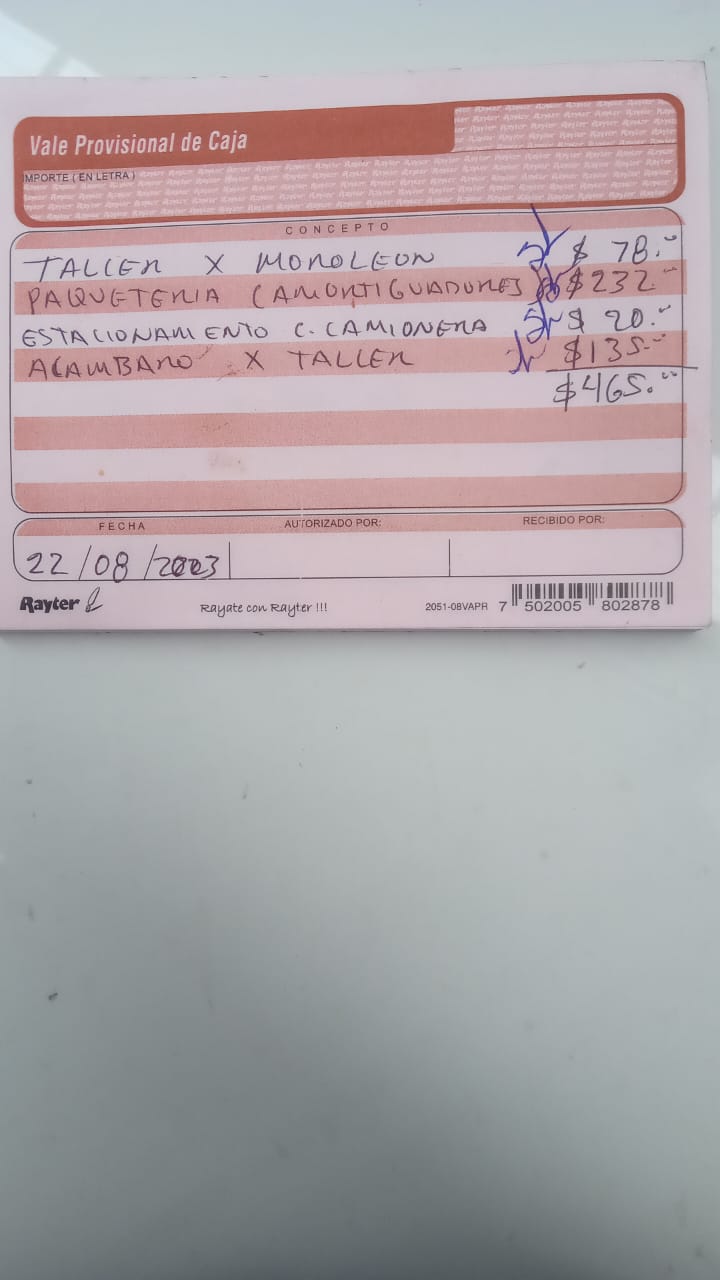 Vale Provisional de Caja
IMPORTE ( EN LETRA )
CONCEPTO
TALLER X MOROLEON $ 78.00
PAQUETERIA (AMORTIGUADORES) $232.00
ESTACIONAMIENTO C. CAMIONERA $ 20.00
ACAMBARO X TALLER $135.00
$465.00
FECHA AUTORIZADO POR: RECIBIDO POR:
22/08/2003
Rayter Rayate con Rayter !!! 2051-08VAPR 7 502005 802878